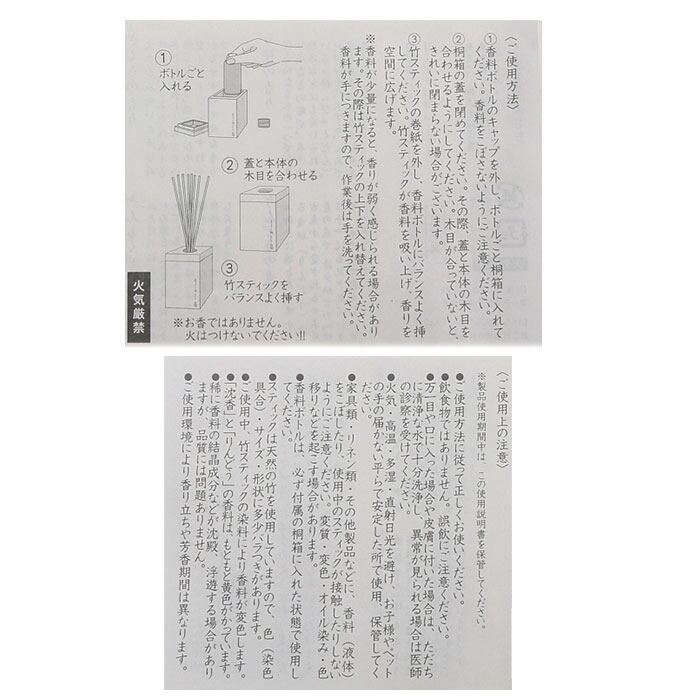 〈ご使用方法〉
①香料ボトルのキャップを外し、ボトルごと桐箱に入れて
ください。香料をこぼさないようにご注意ください。
②桐箱の蓋を閉めてください。その際、蓋と本体の木目を
合わせるようにしてください。木目が合っていないと、
きれいに閉まらない場合がございます。
③竹スティックの巻紙を外し、香料ボトルにバランスよく挿
してください。竹スティックが香料を吸い上げ、香りを
空間に広げます。
※香料が少量になると、香りが弱く感じられる場合があり
ます。その際は竹スティックの上下を入れ替えてください。
香料が手につきますので、作業後は手を洗ってください。
①
ボトルごと
入れる
②
蓋と本体の
木目を合わせる
③
竹スティックを
バランスよく挿す
※お香ではありません。
火はつけないでください!!
火気厳禁
〈ご使用上の注意〉
※製品使用期間中は、この使用説明書を保管してください。
●ご使用方法に従って正しくお使いください。
●飲食物ではありません。誤飲にご注意ください。
●万一目や口に入った場合や皮膚に付いた場合は、ただち
に清浄な水で十分洗浄し、異常が見られる場合は医師
の診察を受けてください。
●火気・高温・多湿・直射日光を避け、お子様やペット
の手の届かない平らで安定した所で使用、保管してく
ださい。
●家具類・リネン類・その他製品などに、香料（液体）
をこぼしたり、使用中のスティックが接触したりしない
ようにご注意ください。変質・変色・オイル染み・色
移りなどを起こす場合があります。
●香料ボトルは、必ず付属の桐箱に入れた状態で使用し
てください。
●スティックは天然の竹を使用していますので、色（染色
具合）・サイズ・形状に多少バラつきがあります。
●ご使用中、竹スティックの染料により香料が変色します。
●「沈香」と「りんどう」の香料は、もともと黄色がかっています。
●稀に香料の結晶成分などが沈殿、浮遊する場合があり
ますが、品質には問題ありません。
●ご使用環境により香り立ちや芳香期間は異なります。